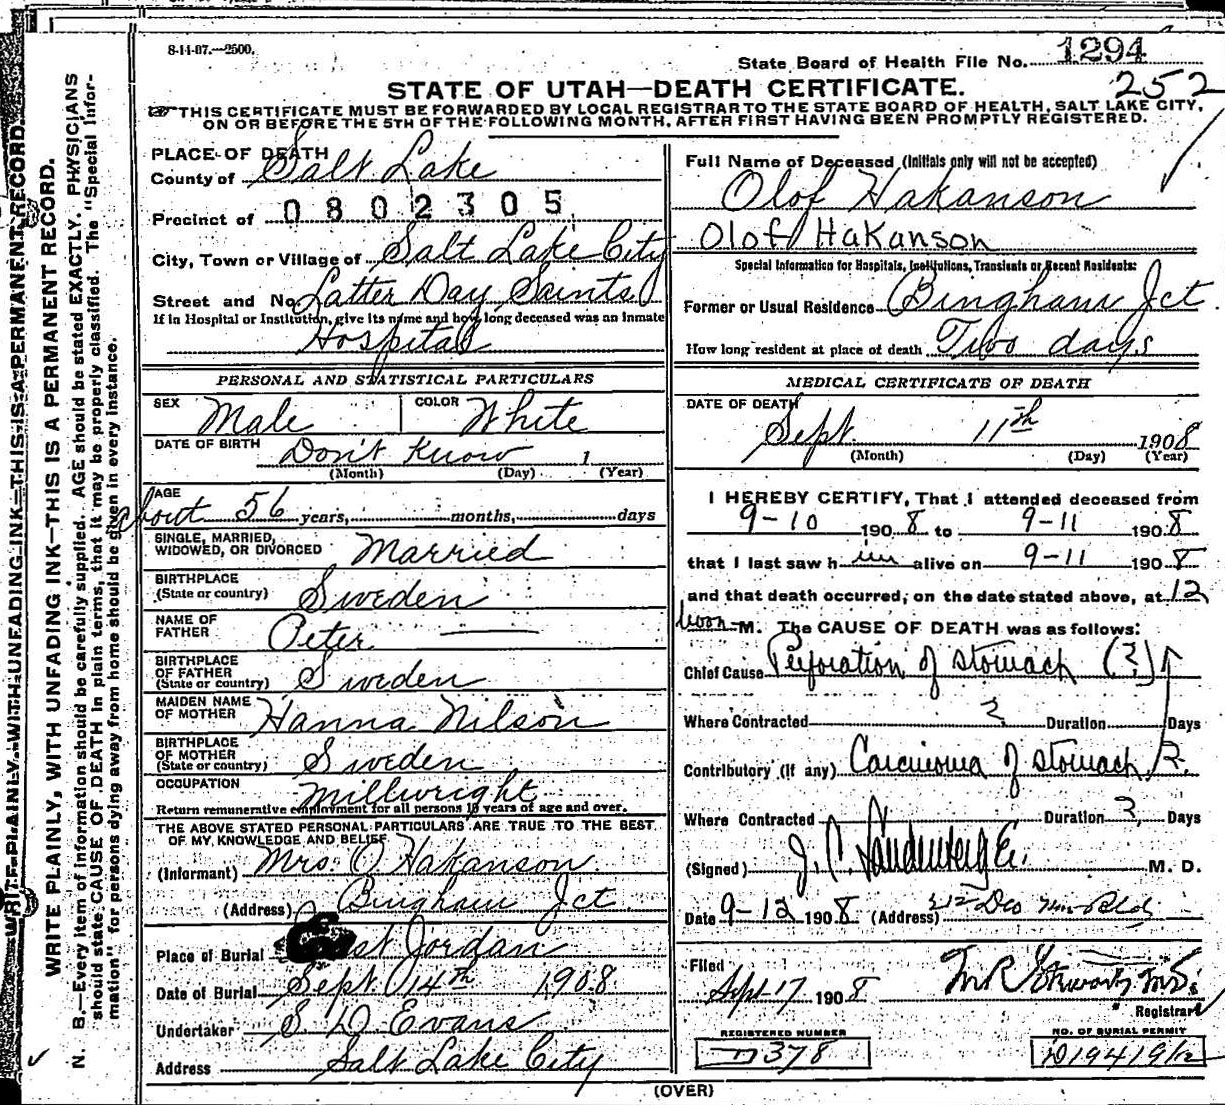 8-14-07.—2500.
State Board of Health File No. 1294
STATE OF UTAH—DEATH CERTIFICATE.
252
THIS CERTIFICATE MUST BE FORWARDED BY LOCAL REGISTRAR TO THE STATE BOARD OF HEALTH, SALT LAKE CITY,
ON OR BEFORE THE 5TH OF THE FOLLOWING MONTH, AFTER FIRST HAVING BEEN PROMPTLY REGISTERED.
WRITE PLAINLY WITH UNFADING INK—THIS IS A PERMANENT RECORD.
WRITE PLAINLY, WITH UNFADING INK—THIS IS A PERMANENT RECORD.
N. B.—Every item of information should be carefully supplied. AGE should be stated EXACTLY. PHYSICIANS
should state CAUSE OF DEATH in plain terms, that it may be properly classified. The "Special Infor-
mation" for persons dying away from home should be given in every instance.
PLACE OF DEATH
County of Salt Lake
Precinct of 0802305
City, Town or Village of Salt Lake City
Street and No. Latter Day Saints
If in Hospital or Institution, give its name and how long deceased was an inmate
Hospital
PERSONAL AND STATISTICAL PARTICULARS
SEX Male COLOR White
DATE OF BIRTH Don't Know 1
(Month) (Day) (Year)
AGE
about 56 years, months, days
SINGLE, MARRIED,
WIDOWED, OR DIVORCED Married
BIRTHPLACE
(State or country) Sweden
NAME OF
FATHER Peter
BIRTHPLACE
OF FATHER
(State or country) Sweden
MAIDEN NAME
OF MOTHER Hanna Nilson
BIRTHPLACE
OF MOTHER
(State or country) Sweden
OCCUPATION Millwright
Return remunerative employment for all persons 10 years of age and over.
THE ABOVE STATED PERSONAL PARTICULARS ARE TRUE TO THE BEST
OF MY KNOWLEDGE AND BELIEF
(Informant) Mrs. O Hakanson
(Address) Bingham Jct
Place of Burial East Jordan
Date of Burial Sept 14th 1908
Undertaker S D Evans
Address Salt Lake City
Full Name of Deceased (Initials only will not be accepted)
Olof Hakanson
Olof Hakanson
Special Information for Hospitals, Institutions, Transients or Recent Residents:
Former or Usual Residence Bingham Jct
How long resident at place of death Two days
MEDICAL CERTIFICATE OF DEATH
DATE OF DEATH
Sept. 11th 1908
(Month) (Day) (Year)
I HEREBY CERTIFY, That I attended deceased from
9-10 1908 to 9-11 1908
that I last saw him alive on 9-11 1908
and that death occurred, on the date stated above, at 12
noon M. The CAUSE OF DEATH was as follows:
Chief Cause Perforation of stomach (?)
Where Contracted ? Duration Days
Contributory (if any) Carcinoma of stomach ?
Where Contracted Duration ? Days
(Signed) J. C. M. D.
Date 9-12 1908 (Address) 312
Filed
Sept 17 1908
Registrar
REGISTERED NUMBER
D378
NO. OF BURIAL PERMIT
(OVER)